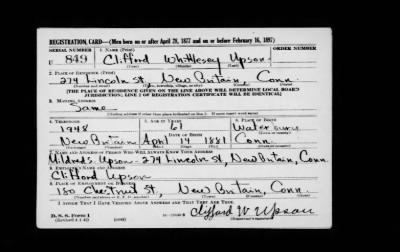 REGISTRATION CARD—(Men born on or after April 28, 1877 and on or before February 16, 1897)
SERIAL NUMBER 1. NAME (Print) ORDER NUMBER
U 849 Clifford Whittlesey Upson
2. PLACE OF RESIDENCE (Print)
274 Lincoln St, New Britain, Conn.
[THE PLACE OF RESIDENCE GIVEN ON THE LINE ABOVE WILL DETERMINE LOCAL BOARD
JURISDICTION; LINE 2 OF REGISTRATION CERTIFICATE WILL BE IDENTICAL]
3. MAILING ADDRESS
Same
4. TELEPHONE 5. AGE IN YEARS 6. PLACE OF BIRTH
1948 61 Waterbury
DATE OF BIRTH
New Britain April 14 1881 Conn
7. NAME AND ADDRESS OF PERSON WHO WILL ALWAYS KNOW YOUR ADDRESS
Mildred S. Upson - 274 Lincoln St, New Britain, Conn
8. EMPLOYER'S NAME AND ADDRESS
Clifford Upson
9. PLACE OF EMPLOYMENT OR BUSINESS
180 Chestnut St, New Britain, Conn.
I AFFIRM THAT I HAVE VERIFIED ABOVE ANSWERS AND THAT THEY ARE TRUE.
D. S. S. Form 1 Clifford W Upson